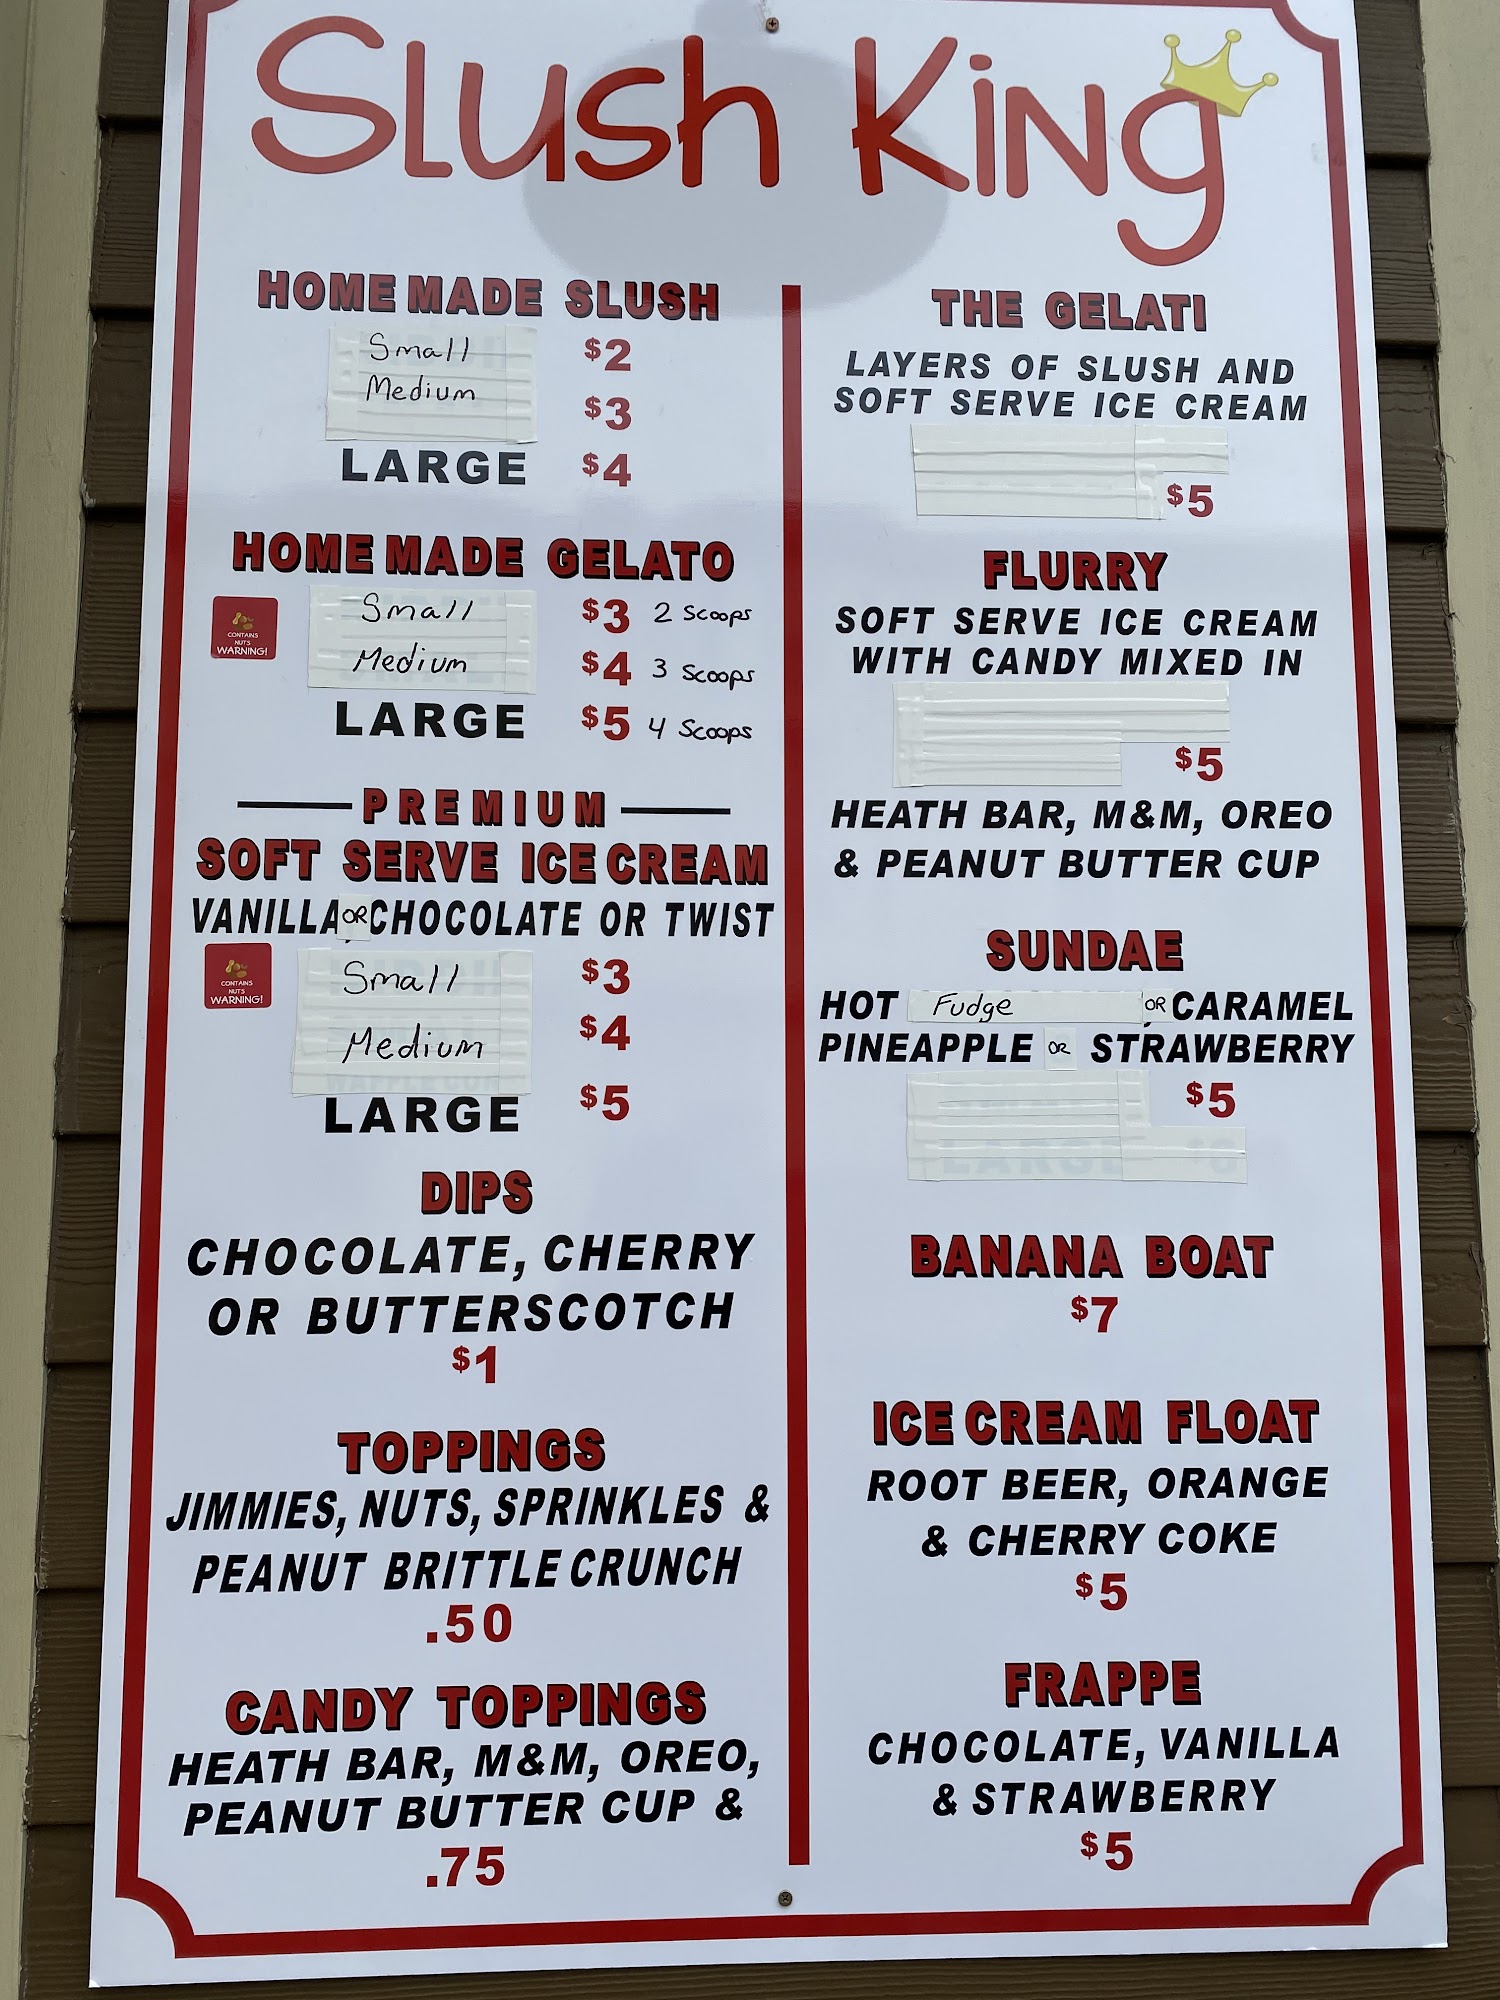 Slush King
HOMEMADE SLUSH
Small $2
Medium $3
LARGE $4
HOMEMADE GELATO
CONTAINS
NUTS
WARNING!
Small $3 2 Scoops
Medium $4 3 Scoops
LARGE $5 4 Scoops
PREMIUM
SOFT SERVE ICE CREAM
VANILLA OR CHOCOLATE OR TWIST
CONTAINS
NUTS
WARNING!
Small $3
Medium $4
LARGE $5
DIPS
CHOCOLATE, CHERRY
OR BUTTERSCOTCH
$1
TOPPINGS
JIMMIES, NUTS, SPRINKLES &
PEANUT BRITTLE CRUNCH
.50
CANDY TOPPINGS
HEATH BAR, M&M, OREO,
PEANUT BUTTER CUP &
.75
THE GELATI
LAYERS OF SLUSH AND
SOFT SERVE ICE CREAM
$5
FLURRY
SOFT SERVE ICE CREAM
WITH CANDY MIXED IN
$5
HEATH BAR, M&M, OREO
& PEANUT BUTTER CUP
SUNDAE
HOT Fudge OR CARAMEL
PINEAPPLE OR STRAWBERRY
$5
BANANA BOAT
$7
ICE CREAM FLOAT
ROOT BEER, ORANGE
& CHERRY COKE
$5
FRAPPE
CHOCOLATE, VANILLA
& STRAWBERRY
$5